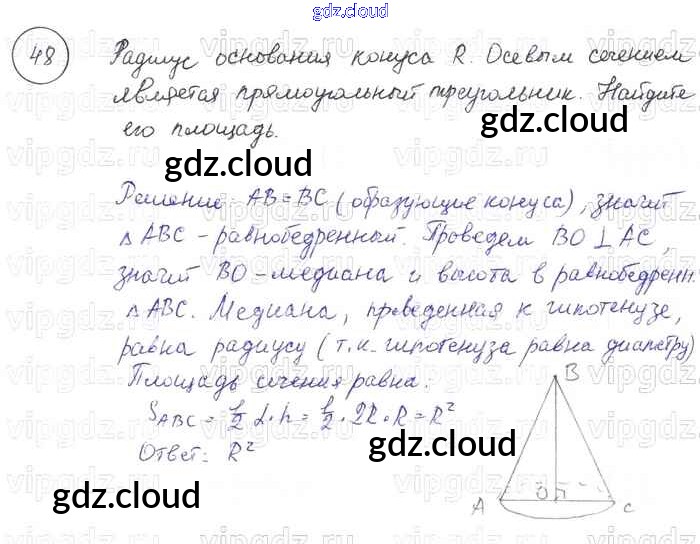 gdz.cloud
48
Радиус основания конуса R. Осевым сечением
является прямоугольный треугольник. Найдите
его площадь.
gdz.cloud
gdz.cloud
Решение: AB=BC (образующие конуса), значит
△ABC - равнобедренный. Проведем BO⊥AC,
значит BO - медиана и высота в равнобедренн.
△ABC. Медиана, проведенная к гипотенузе,
равна радиусу (т.к. гипотенуза равна диаметру)
Площадь сечения равна:
S_ABC = 1/2 d·h = 1/2 · 2R · R = R²
Ответ: R²
B
A
O
C
gdz.cloud
gdz.cloud
gdz.cloud
vipgdz.ru